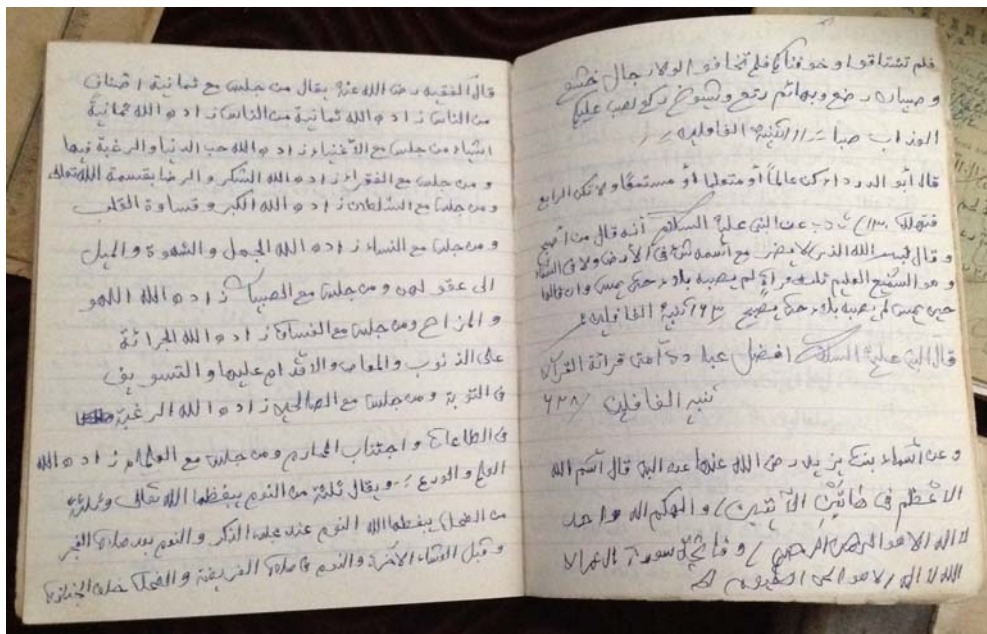 فلم تشتاقوا وخوفناكم فلم تخافوا لولا رجال خشع
وصبيان رضع وبهائم رتع وشيوخ ركع لصب عليكم
العذاب صبا تنبيه الغافلين
قال أبو الدرداء كن عالماً أو متعلما أو مستمعا ولا تكن الرابع
فتهلك عن النبي عليه السلام أنه قال من أصبح
وقال بسم الله الذي لا يضر مع اسمه شئ في الأرض ولا في السماء
وهو السميع العليم ثلث مراة لم يصبه بلاء حتى يمسى وان قالها
حين يمسى لم يصبه بلاء حتى يصبح تنبيه الغافلين
قال النبي عليه السلام افضل عبادة أمتى قرائة القرآن
تنبيه الغافلين ٦٢٨
وعن أسماء بنت يزيد رضى الله عنها عنه قال اسم الله
الاعظم في هاتين الآيتين والهكم اله واحد
لا اله الا هو الرحمن الرحيم وفاتحة سورة آل عمران
الله لا اله الا هو الحى القيوم
قال الفقيه رضى الله عنه يقال من جلس مع ثمانية اصناف
من الناس زاده الله ثمانية
اشياء من جلس مع الأغنياء زاده الله حب الدنيا والرغبة فيها
ومن جلس مع الفقراء زاده الله الشكر والرضا بقسمة الله تعالى
ومن جلس مع السلطان زاده الله الكبر وقساوة القلب
ومن جلس مع النساء زاده الله الجهل والشهوة والميل
الى عقولهن ومن جلس مع الصبيان زاده الله اللهو
والمزاح ومن جلس مع الفساق زاده الله الجرائة
على الذنوب والمعاصى والاقدام عليها والتسويف
فى التوبة ومن جلس مع الصالحين زاده الله الرغبة
فى الطاعات واجتناب المحارم ومن جلس مع العلماء زاده الله
العلم والورع ويقال ثلثة من النوم يبغضها الله تعالى وثلثة
من الضحك يبغضها الله النوم عند مجلس الذكر والنوم بعد صلاة الفجر
وقبل العشاء الآخرة والنوم فى صلاة الفريضة والضحك خلف الجنازة